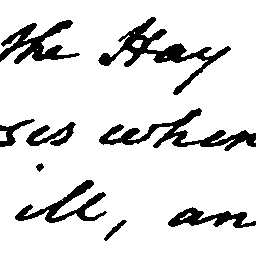 the Hay
ses when
ill, an